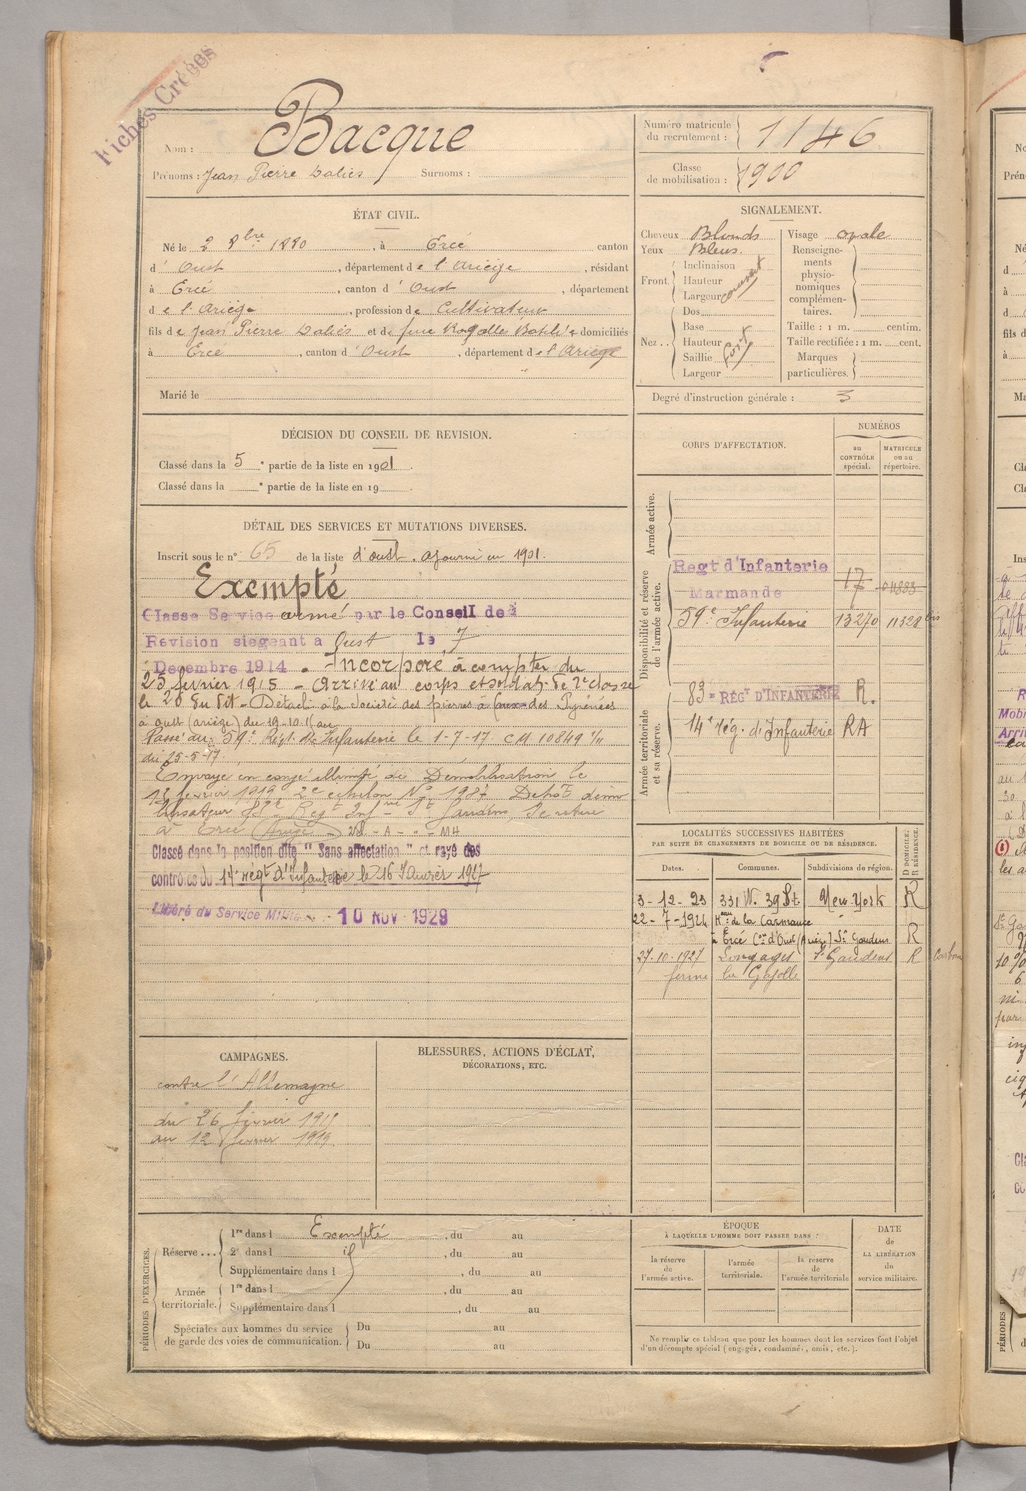 Fiches Créées
Nom : Bacque
Prénoms : Jean Pierre Daliès Surnoms :
Numéro matricule du recrutement : 1146
Classe de mobilisation : 1900
ÉTAT CIVIL.
Né le 2 8bre 1880, à Ercé canton
d' Oust, département de l'Ariège, résidant
à Ercé, canton d' Oust, département
de l'Ariège, profession de Cultivateur
fils de Jean Pierre Daliès et de feue Rogalle Batile domiciliés
à Ercé, canton d' Oust, département de l'Ariège
Marié le
SIGNALEMENT.
Cheveux Blonds
Yeux Bleus
Front. Inclinaison
Hauteur
Largeur
Nez .. Dos
Base
Hauteur
Saillie
Largeur
fort
Visage ovale
Renseignements physionomiques complémentaires.
Taille : 1 m. centim.
Taille rectifiée : 1 m. cent.
Marques particulières.
Degré d'instruction générale : 3
DÉCISION DU CONSEIL DE REVISION.
Classé dans la 5e partie de la liste en 1901
Classé dans la e partie de la liste en 19
DÉTAIL DES SERVICES ET MUTATIONS DIVERSES.
Inscrit sous le n° 65 de la liste d'oust. Ajourné en 1901.
Exempté
Classé Service armé par le Conseil de
Revision siégeant à Oust le 7
Décembre 1914. Incorporé à compter du
25 février 1915 - Arrivé au corps et soldat de 2e classe
le 26 du dit - Détaché à la Société des pierres à faux des Pyrénées
à Oust (Ariège) du 19-10-15 au
Passé au 59e Régt d'Infanterie le 1-7-17 CM 10849
du 25-5-17.
Envoyé en congé illimité de Démobilisation le
12 février 1919 2e échelon No 1987 Dépôt démo
bilisateur Regt Inf St Gaudens, Se retire
à Ercé (Ariège)
Classé dans la position dite "Sans affectation" et rayé des
contrôles du 14e Régt d'Infanterie le 16 Janvier 1927
Libéré du Service Militaire 10 NOV 1929
CORPS D'AFFECTATION.
NUMÉROS
au CONTRÔLE spécial.
MATRICULE ou au répertoire.
Armée active.
Disponibilité et réserve de l'armée active.
Regt d'Infanterie Marmande 17
59e Infanterie 13270 11328 bis
Armée territoriale et sa réserve.
83e RÉGt D'INFANTERIE R.
14e rég. d'Infanterie RA
LOCALITÉS SUCCESSIVES HABITÉES
PAR SUITE DE CHANGEMENTS DE DOMICILE OU DE RÉSIDENCE.
Dates. Communes. Subdivisions de région. D DOMICILE. R RÉSIDENCE.
3-12-23 331 W. 39 St. New-York R
22-7-1924 Hau de la Carmance
à Ercé Con d'Oust (Ariège) St Gaudens R
27-10-1927 Longages St Gaudens R
ferme la Gajolle
CAMPAGNES.
contre l'Allemagne
du 26 février 1915
au 12 février 1919.
BLESSURES, ACTIONS D'ÉCLAT,
DÉCORATIONS, ETC.
PÉRIODES D'EXERCICES.
Réserve ... 1re dans l Exempté, du au
2e dans l, du au
Supplémentaire dans l, du au
Armée territoriale. 1re dans l, du au
Supplémentaire dans l, du au
Spéciales aux hommes du service de garde des voies de communication. Du au
Du au
ÉPOQUE
À LAQUELLE L'HOMME DOIT PASSER DANS :
la réserve de l'armée active.
l'armée territoriale.
la réserve de l'armée territoriale
DATE DE LA LIBÉRATION du service militaire.
Ne remplir ce tableau que pour les hommes dont les services font l'objet
d'un décompte spécial (engagés, condamnés, omis, etc.).